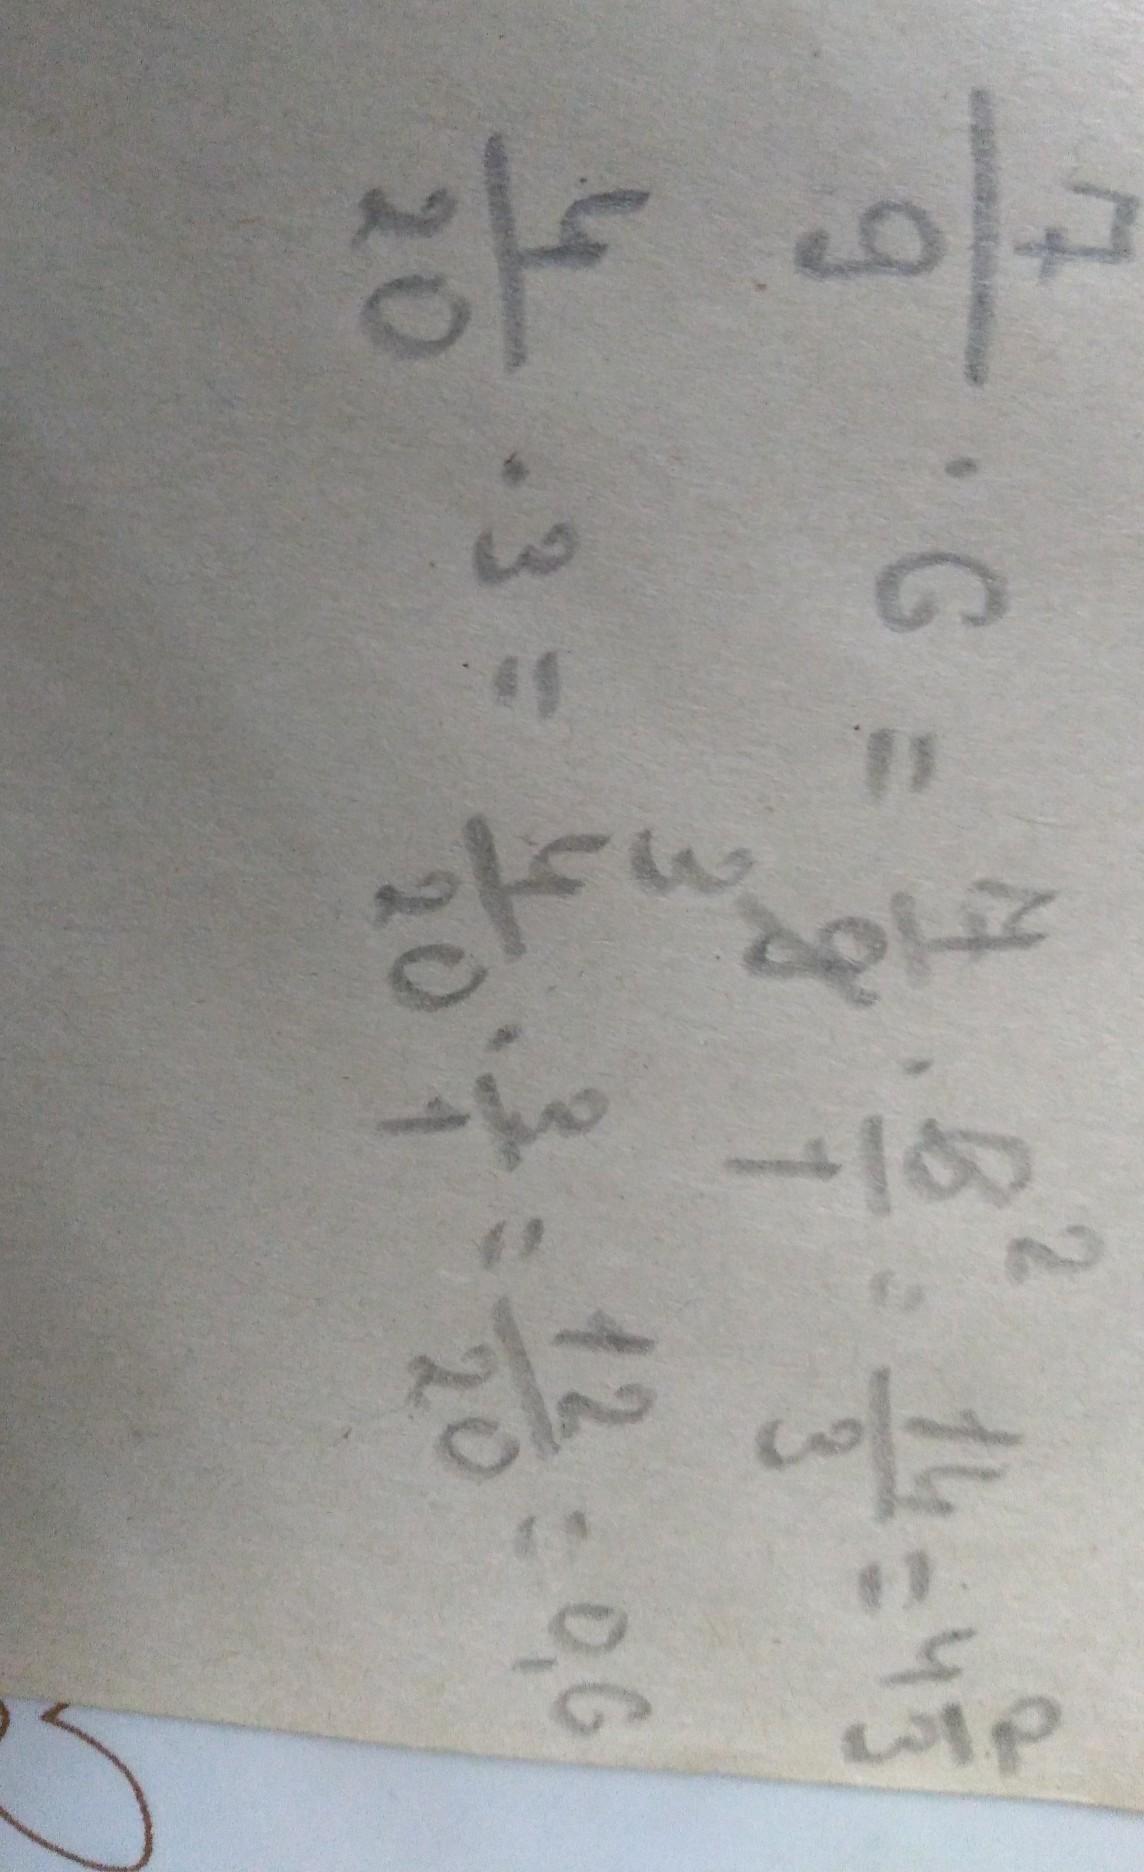 7/9 · 6 = 7/9 3 · 6/1 2 = 14/3 = 4 2/3
4/20 · 3 = 4/20 · 3/1 = 12/20 = 0,6